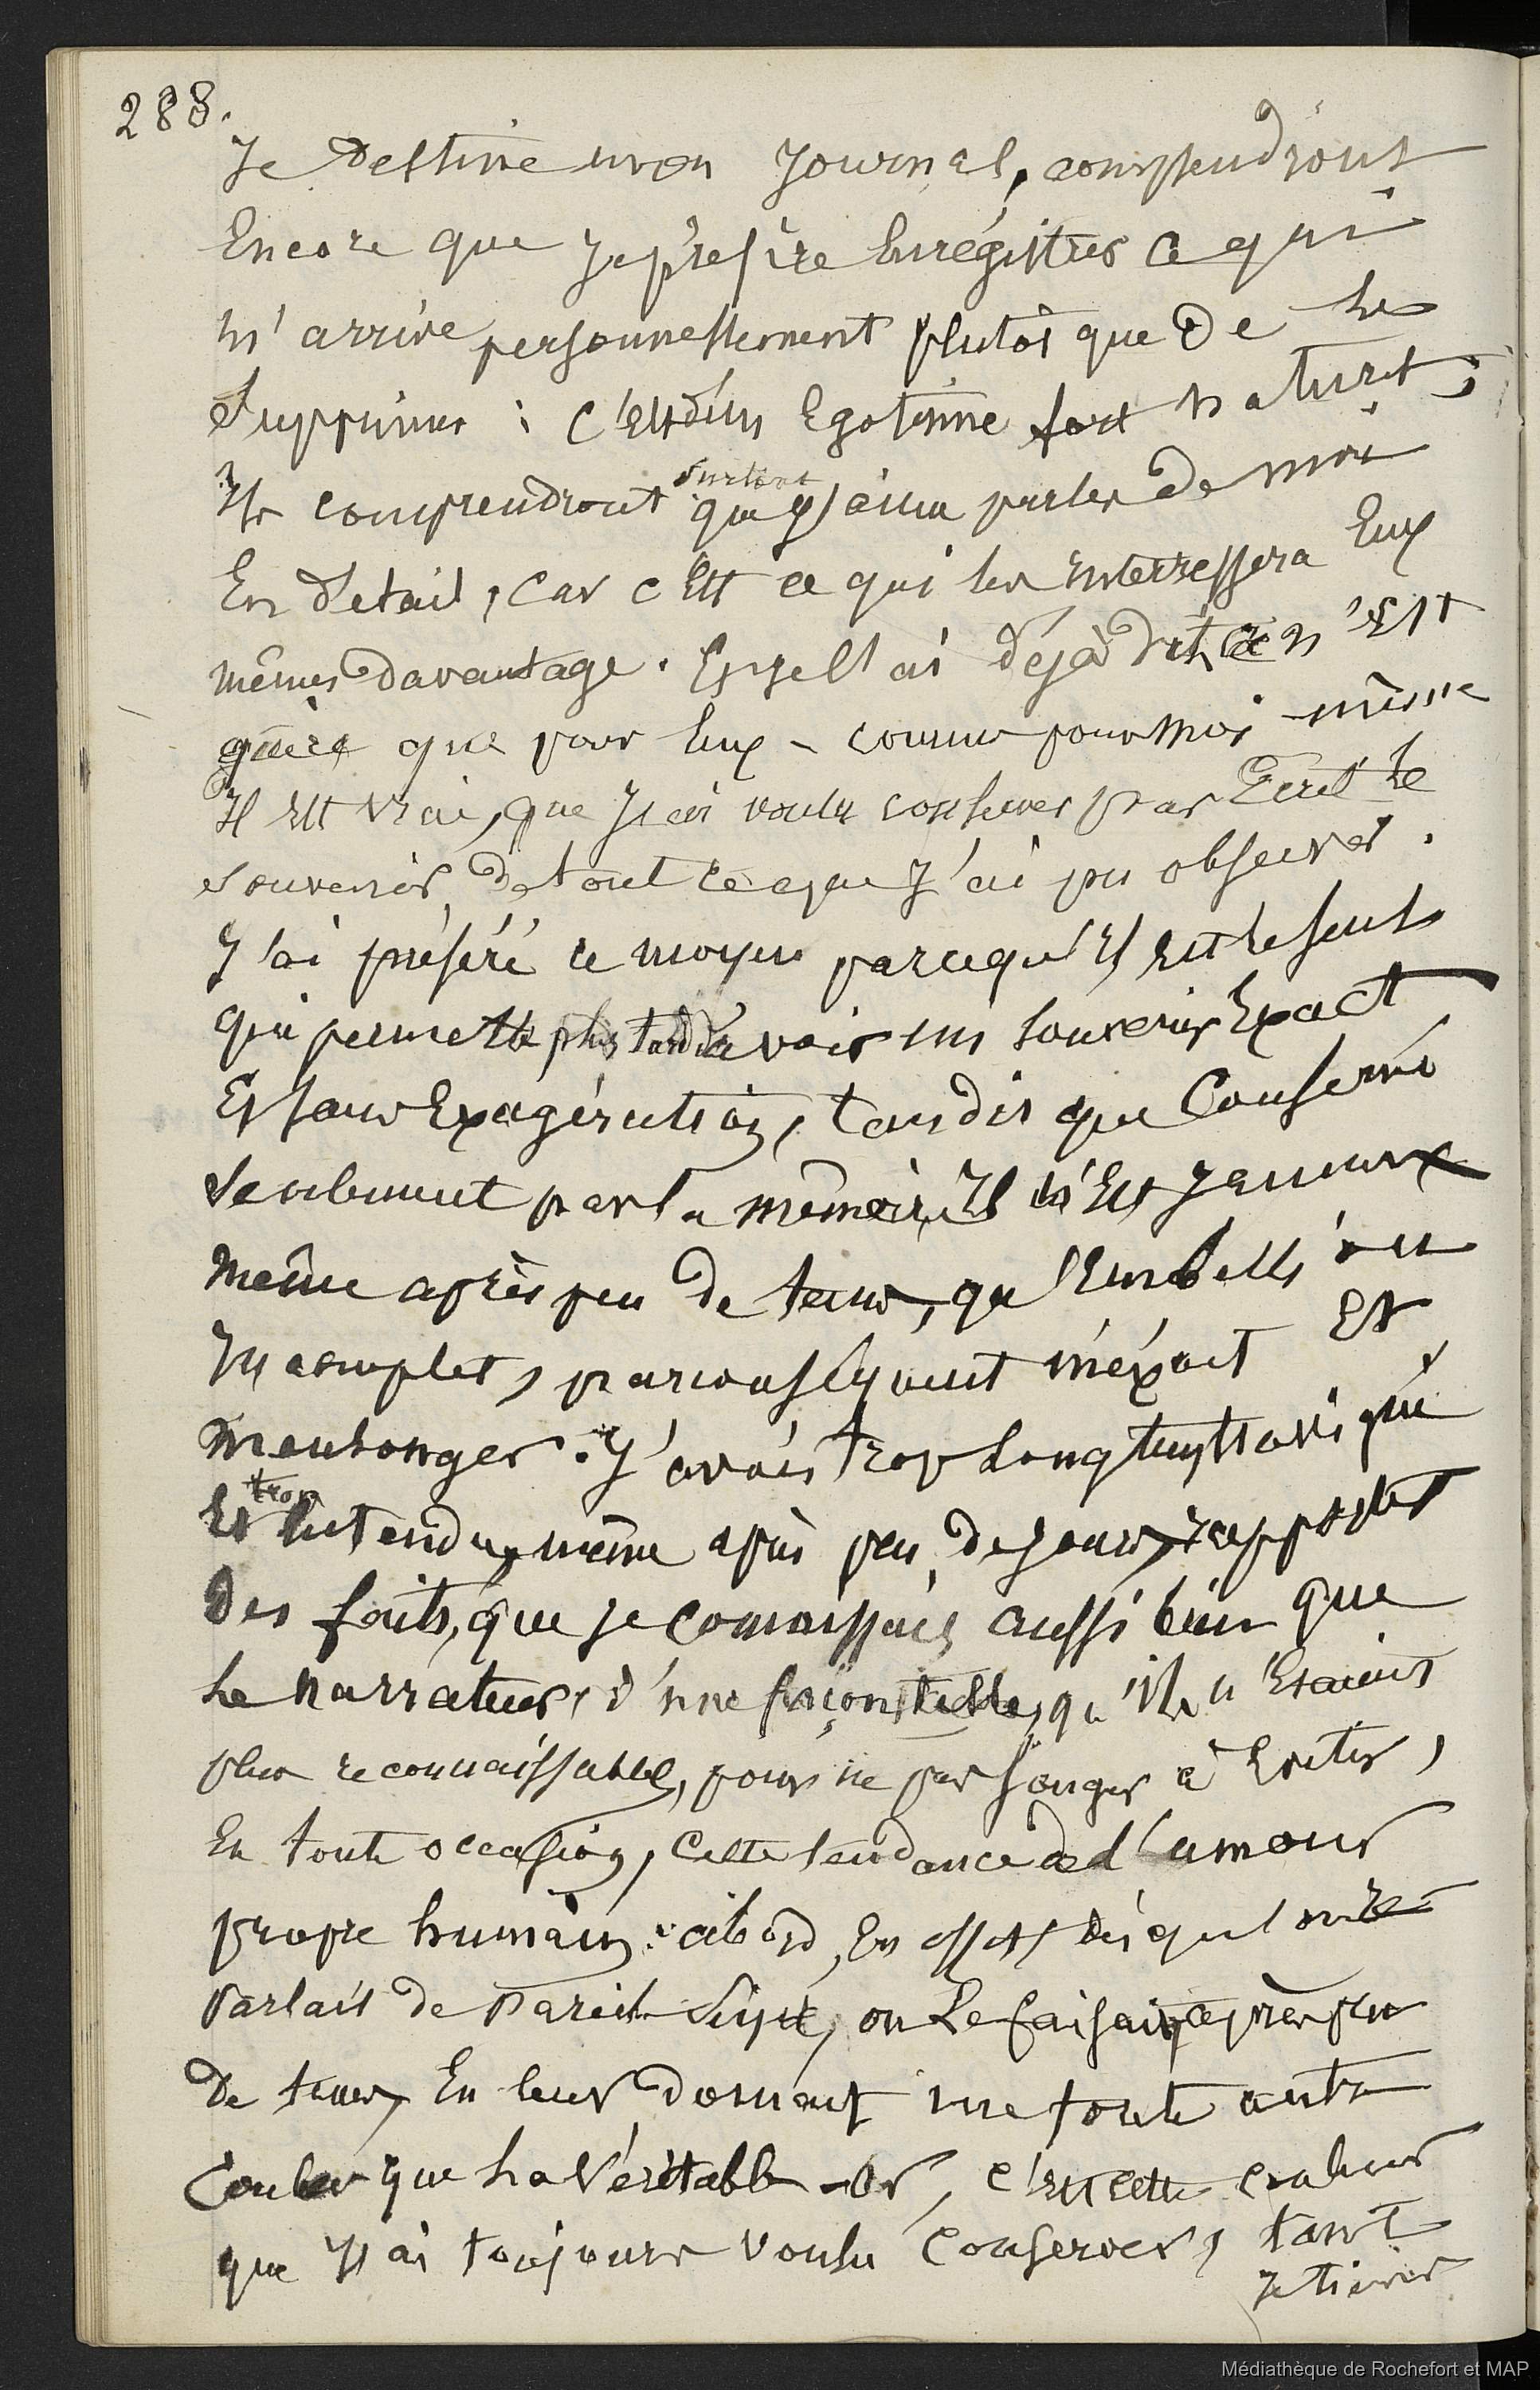 288.
Je destine mon Journal, comprendront
Encore que je préfère Enrégistrer ce qui
m'arrive personnellement plutôt que de le
supprimer : c'est d'un Egotisme fort naturel ;
Ils comprendront surtout que j'aime parler de moi
En détail, car c'est ce qui les interressera Eux
mêmes davantage. Et je l'ai déjà dit, ce n'est
guère que pour Eux - comme pour moi-même
Il est vrai, que j'ai voulu conserver par Ecrit le
souvenir, de tout ce que j'ai pu observer.
J'ai préféré ce moyen parcequ'il est le seul
qui permette plus tard d'avoir un souvenir Exact
Et sans Exagération, tandis que Conservé
seulement par la mémoire, Il n'est jamais
même après peu de tems, qu'Embelli ou
Incomplet, par conséquent inéxact Et
mensonger. J'avais trop longtems ouï
Et trop Entendu, même après peu de jours, rapporter
des faits, que je connaissais aussi bien que
le narrateur, d'une façon telle, qu'ils n'Etaient
plus reconnaissables, pour ne pas songer à Eviter,
En toute occasion, Cette tendance de l'amour
propre humain : abord, En effet, dès que l'on
parlait de pareil sujet, on le faisait, après peu
de tems, En leur donnant une toute autre
Couleur que la Véritable - Or, c'est cette couleur
que j'ai toujours voulu Conserver, tant
je tiens
Médiathèque de Rochefort et MAP